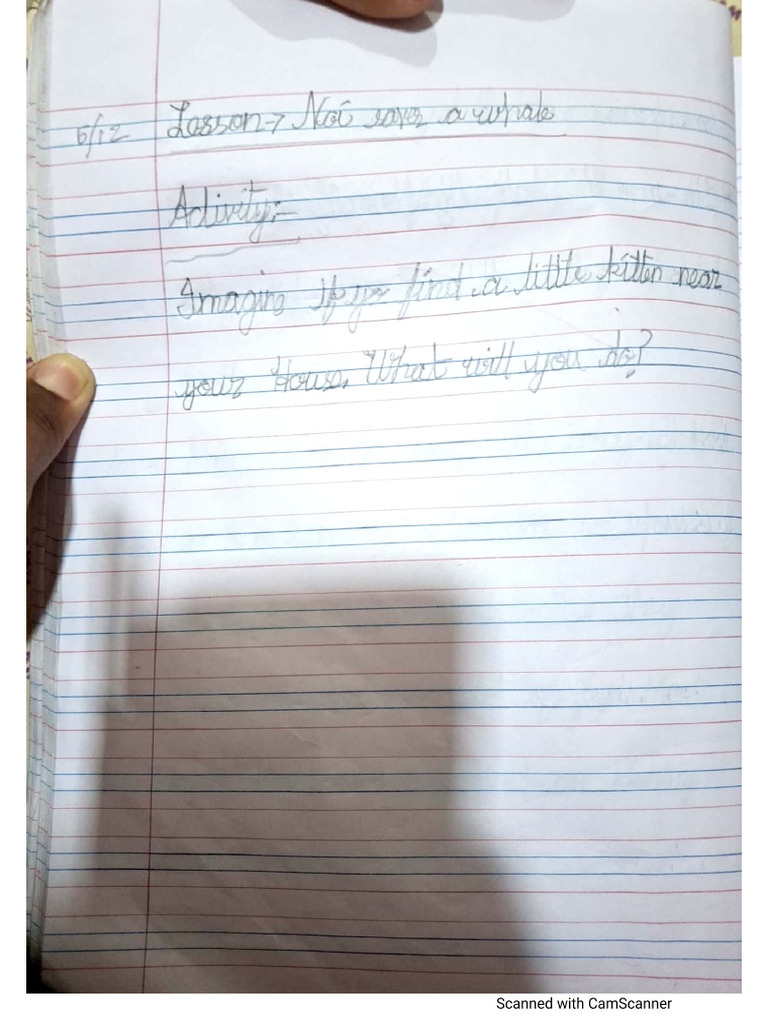 5/12 Lesson → Noi saves a whale
Activity:-
Imagine if you find a little kitten near
your House. What will you do?
Scanned with CamScanner